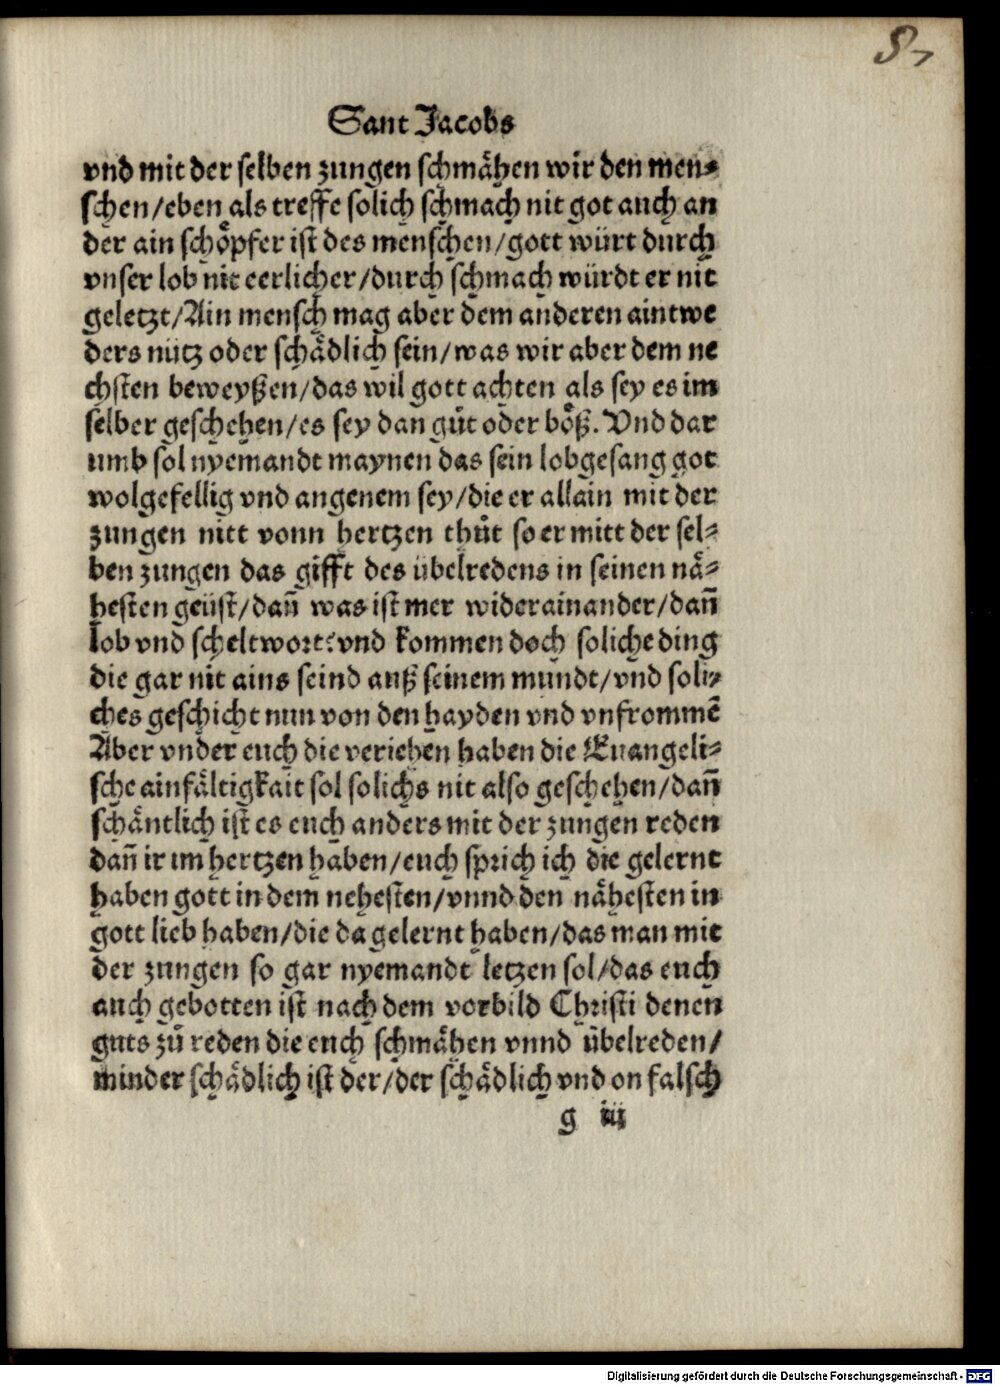 87
Sant Jacobs
vnd mit der selben zungen schmähen wir den men⸗
schen/eben als treffe solich schmach nit got auch an
der ain schoͤpfer ist des menschen/gott würt durch
vnser lob nit eerlicher/durch schmach würdt er nit
geletzt/Ain mensch mag aber dem anderen aintwe
ders nütz oder schädlich sein/was wir aber dem ne
chsten beweyßen/das wil gott achten als sey es im
selber geschehen/es sey dan guͦt oder boͤß. Vnd dar
umb sol nyemandt maynen das sein lobgesang got
wolgefellig vnd angenem sey/die er allain mit der
zungen nitt vonn hertzen thuͦt so er mitt der sel⸗
ben zungen das gifft des übelredens in seinen nä⸗
hesten geüst/dan̄ was ist mer widerainander/dan̄
lob vnd scheltwort? vnd kommen doch soliche ding
die gar nit ains seind auß seinem mundt/vnd soli⸗
ches geschicht nun von den hayden vnd vnfrommē
Aber vnder euch die veriehen haben die Euangeli⸗
sche ainfältigkait sol solichs nit also geschehen/dan̄
schäntlich ist es euch anders mit der zungen reden
dan̄ ir im hertzen haben/euch sprich ich die gelernt
haben gott in dem nehesten/vnnd den nähesten in
gott lieb haben/die da gelernt haben/das man mit
der zungen so gar nyemandt letzen sol/das euch
auch gebotten ist nach dem vorbild Christi denen
guts zuͦ reden die euch schmähen vnnd übelreden/
minder schädlich ist der/der schädlich vnd on falsch
g iij
Digitalisierung gefördert durch die Deutsche Forschungsgemeinschaft - DFG